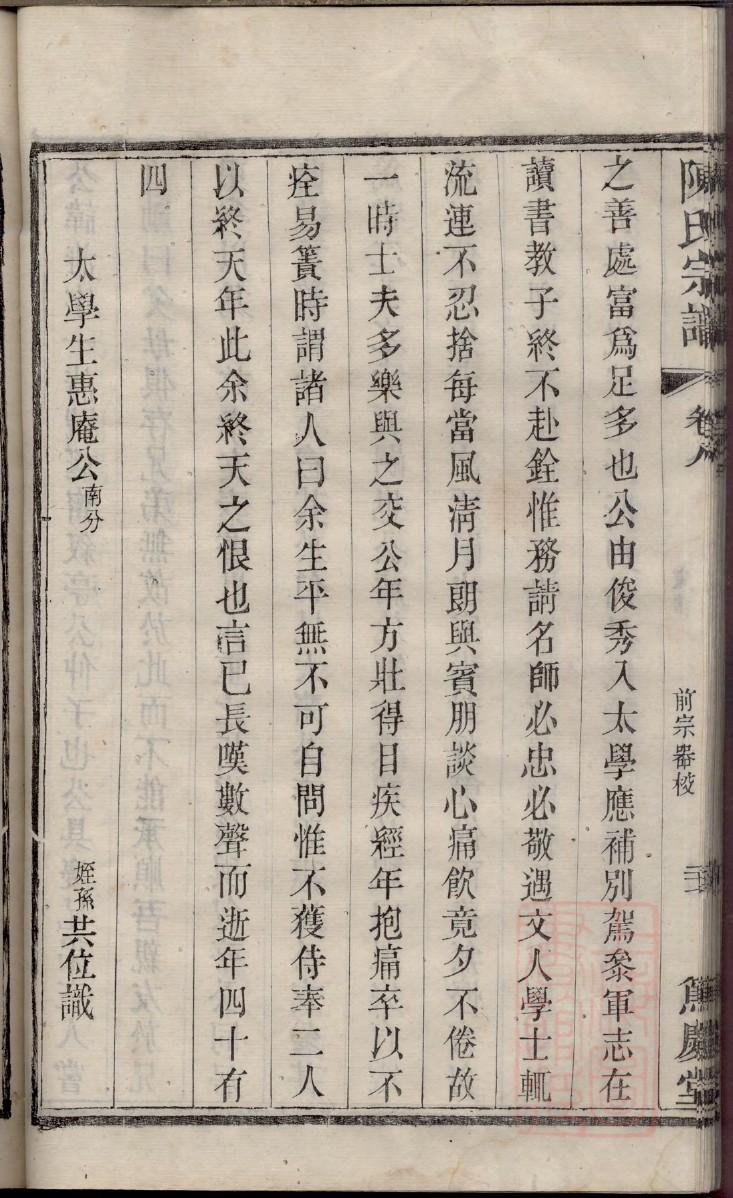 陳氏宗譜
卷八
前宗器校
之善處富爲足多也公由俊秀入太學應補別駕叅軍志在
讀書教子終不赴銓惟務請名師必忠必敬遇文人學士輒
流連不忍捨每當風淸月朗與賓朋談心痛飲竟夕不倦故
一時士夫多樂與之交公年方壯得目疾經年抱痛卒以不
痊易簀時謂諸人曰余生平無不可自問惟不獲侍奉二人
以終天年此余終天之恨也言已長嘆數聲而逝年四十有
四
太學生惠庵公南分
姪孫共位識